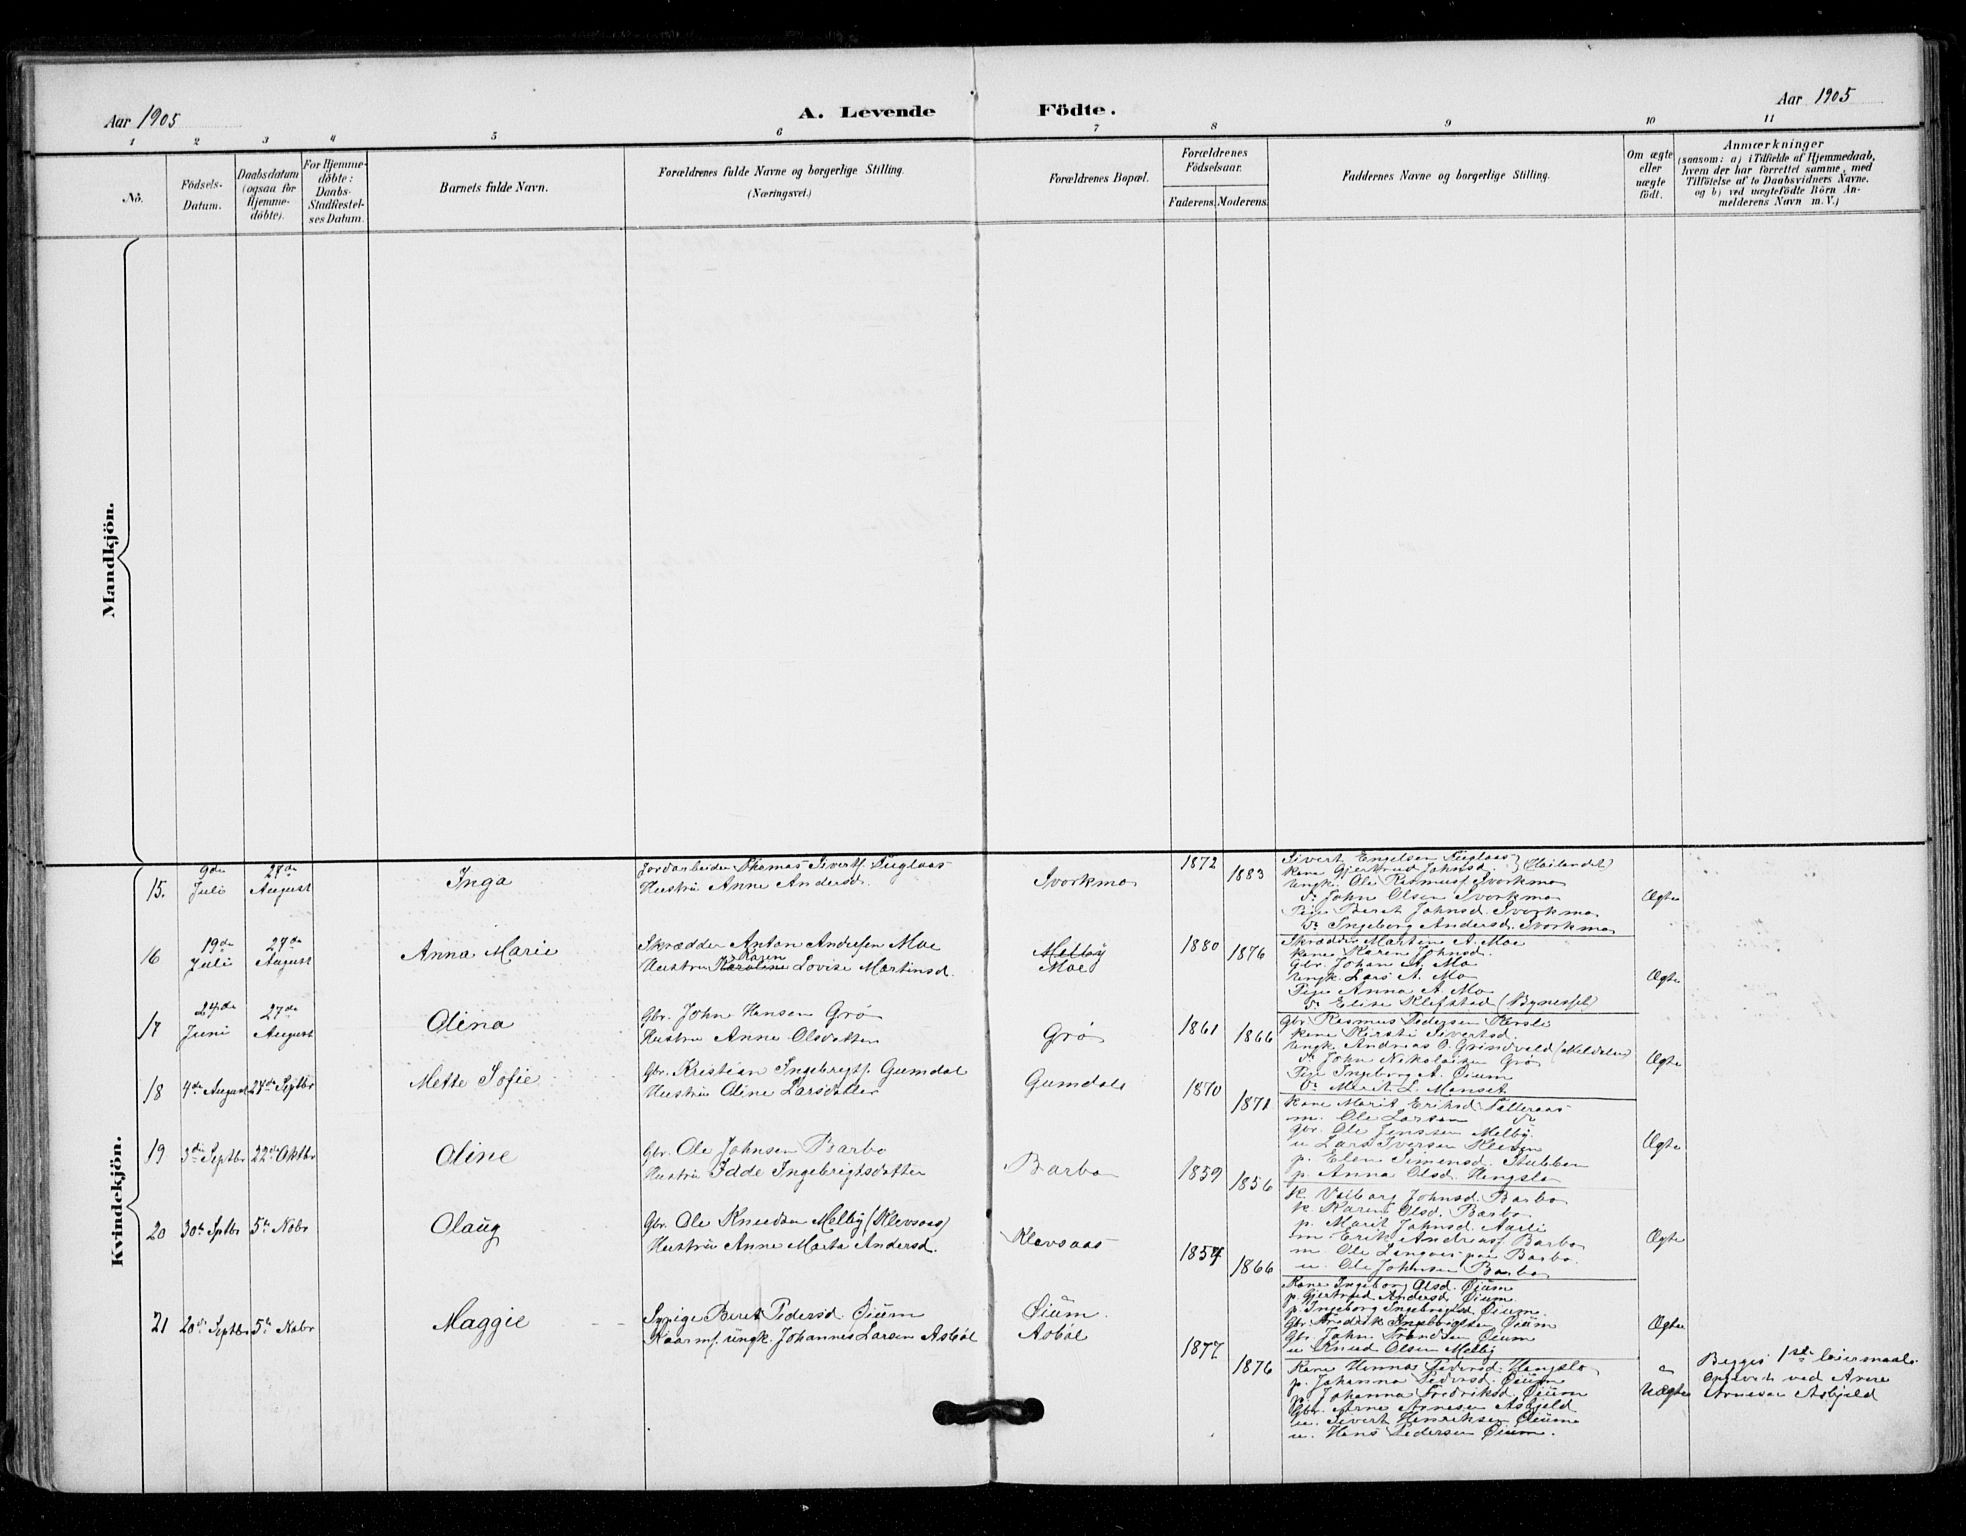 Aar 1905
A. Levende Födte.
Aar 1905
1 2 3 4 5 6 7 8 9 10 11
No.
Födsels-
Datum.
Daabsdatum
(ogsaa for
Hjemme-
döbte).
For Hjemme-
döbte:
Daabs-
Stadfæstel-
ses Datum.
Barnets fulde Navn.
Forældrenes fulde Navne og borgerlige Stilling.
(Næringsvei.)
Forældrenes Bopæl.
Forældrenes
Födselsaar.
Faderens. Moderens.
Faddernes Navne og borgerlige Stilling.
Om ægte
eller
uægte
födt.
Anmærkninger
(saasom: a) i Tilfælde af Hjemmedaab,
hvem der har forrettet samme, med
Tilföielse af to Daabsvidners Navne.
og b) ved uægtefödte Börn An-
melderens Navn m. V.)
Mandkjön.
Kvindekjön.
15.
9de
Juli
27de
August
Inga
Jordarbeider Thomas Siverts. Fuglaas
Hustru Anne Andersd.
Svorkmo
1872
1883
Sivert Engelsen Fuglaas
Kone Gjertrud Johnsd. (Høilandet)
Ungk. Ole Rasmuss. Svorkmo
Do John Olsen Svorkmo
Pige Beret Johnsd. Svorkmo
Do Ingeborg Andersd. Svorkmo
Ægte
16
19de
Juli
27de
August
Anna Marie
Skrædder Anton Andersen Moe
Karen
Hustru Karoline Lovise Martinsd.
Melby
Moe
1880
1876
Skrædder Martin A. Moe
Kone Karen Johnsd.
Gbr. Johan A. Mo
Ungk. Lars A. Mo
Pige Anna A. Mo
Do Elise Klefstad (Bynesset)
Ægte
17
24de
Juni
27de
August
Olina
Gbr. John Hansen Grø
Hustru Anne Olsdatter
Grø
1861
1866
Gbr Rasmus Pedersen
Kone Kirsti Sivertsd.
Ungk. Andreas O. Grindvold (Meldalen)
Do John Nikolaisen Grø
Pige Ingeborg A. Øium
Do Marit L. Monset
Ægte
18
4de August
24de Septbr
Mette Sofie
Gbr. Kristian Ingebrigts. Gumdal
Hustru Oline Larsdatter
Gumdal
1870
1871
Kone Marit Eriksd
m. Ole Larsen Do
Gbr. Ole Jensen Melby
u Lars Iversen
p. Elen Simensd. Stubben
p. Anna Olsd. Hengslo
Ægte
19
3die Septbr
22de Oktbr
Oline
Gbr. Ole Johnsen Barbo
Hustru Idde Ingebrigtsdatter
Barbo
1859
1856
K. Valborg Johnsd. Barbo
k. Karen Olsd. Barbo
p. Marit Johnsd. Aarli
m Erik Andreass Barbo
m Ole Barbo.
u. Ole Johnsen Barbo
Ægte
20
30te Septbr
5te Nobr
Olaug
Gbr. Ole Knudsen Melby (Klevsaas)
Hustru Anne Marta Andersd.
Klevsaas
1857
1866
Kone Ingeborg Olsd. Øium
p. Gjertrud Andersd. Øium
p. Ingeborg Ingebrigtsd Øium.
Gbr Fredrik Ingebrigtsen Øium
Gbr. John Trondsen Øium
u Knud Olsen Melby
Ægte
21
20de Septbr
5te Nobr
Maggie
Sypige Beret Pedersd. Øium
Skaarmf. ungk. Johannes Larsen Asbøl
Øium.
Asbøl
1877
1876
Kone Hanna Pedersd. Hengslo
p. Johanna Pedersd. Øium
p Johanna Fredriksd. Øium
Gbr. Arne Arnesen Asbjeld
u. Sivert Henriksen Øium
u. Hans Pedersen Øium.
Uægte
Begges 1ste leiermaal.
Opgivet ved Arne
Arnesen Asbjeld